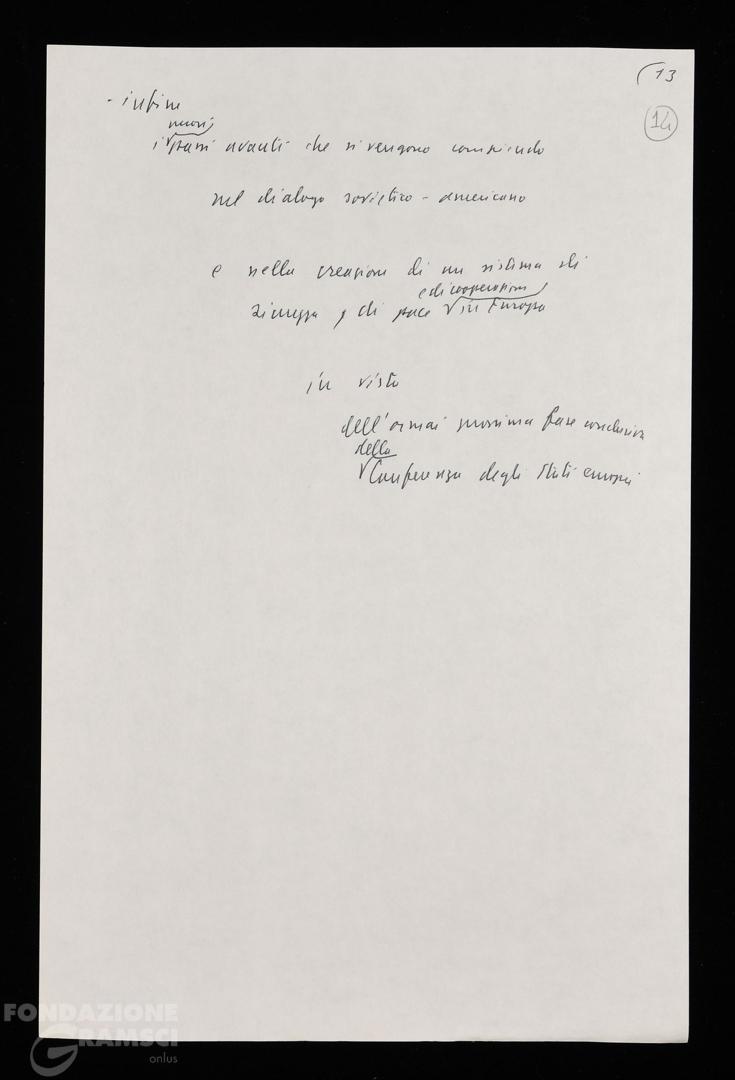 (13
14
- infine
nuovi
i passi avanti che si vengono compiendo
nel dialogo sovietico - americano
e nella creazione di un sistema di
e di cooperazione
sicurezza, di pace in Europa
in vista
dell'ormai prossima fase conclusiva
della
Conferenza degli Stati europei
FONDAZIONE
GRAMSCI
onlus